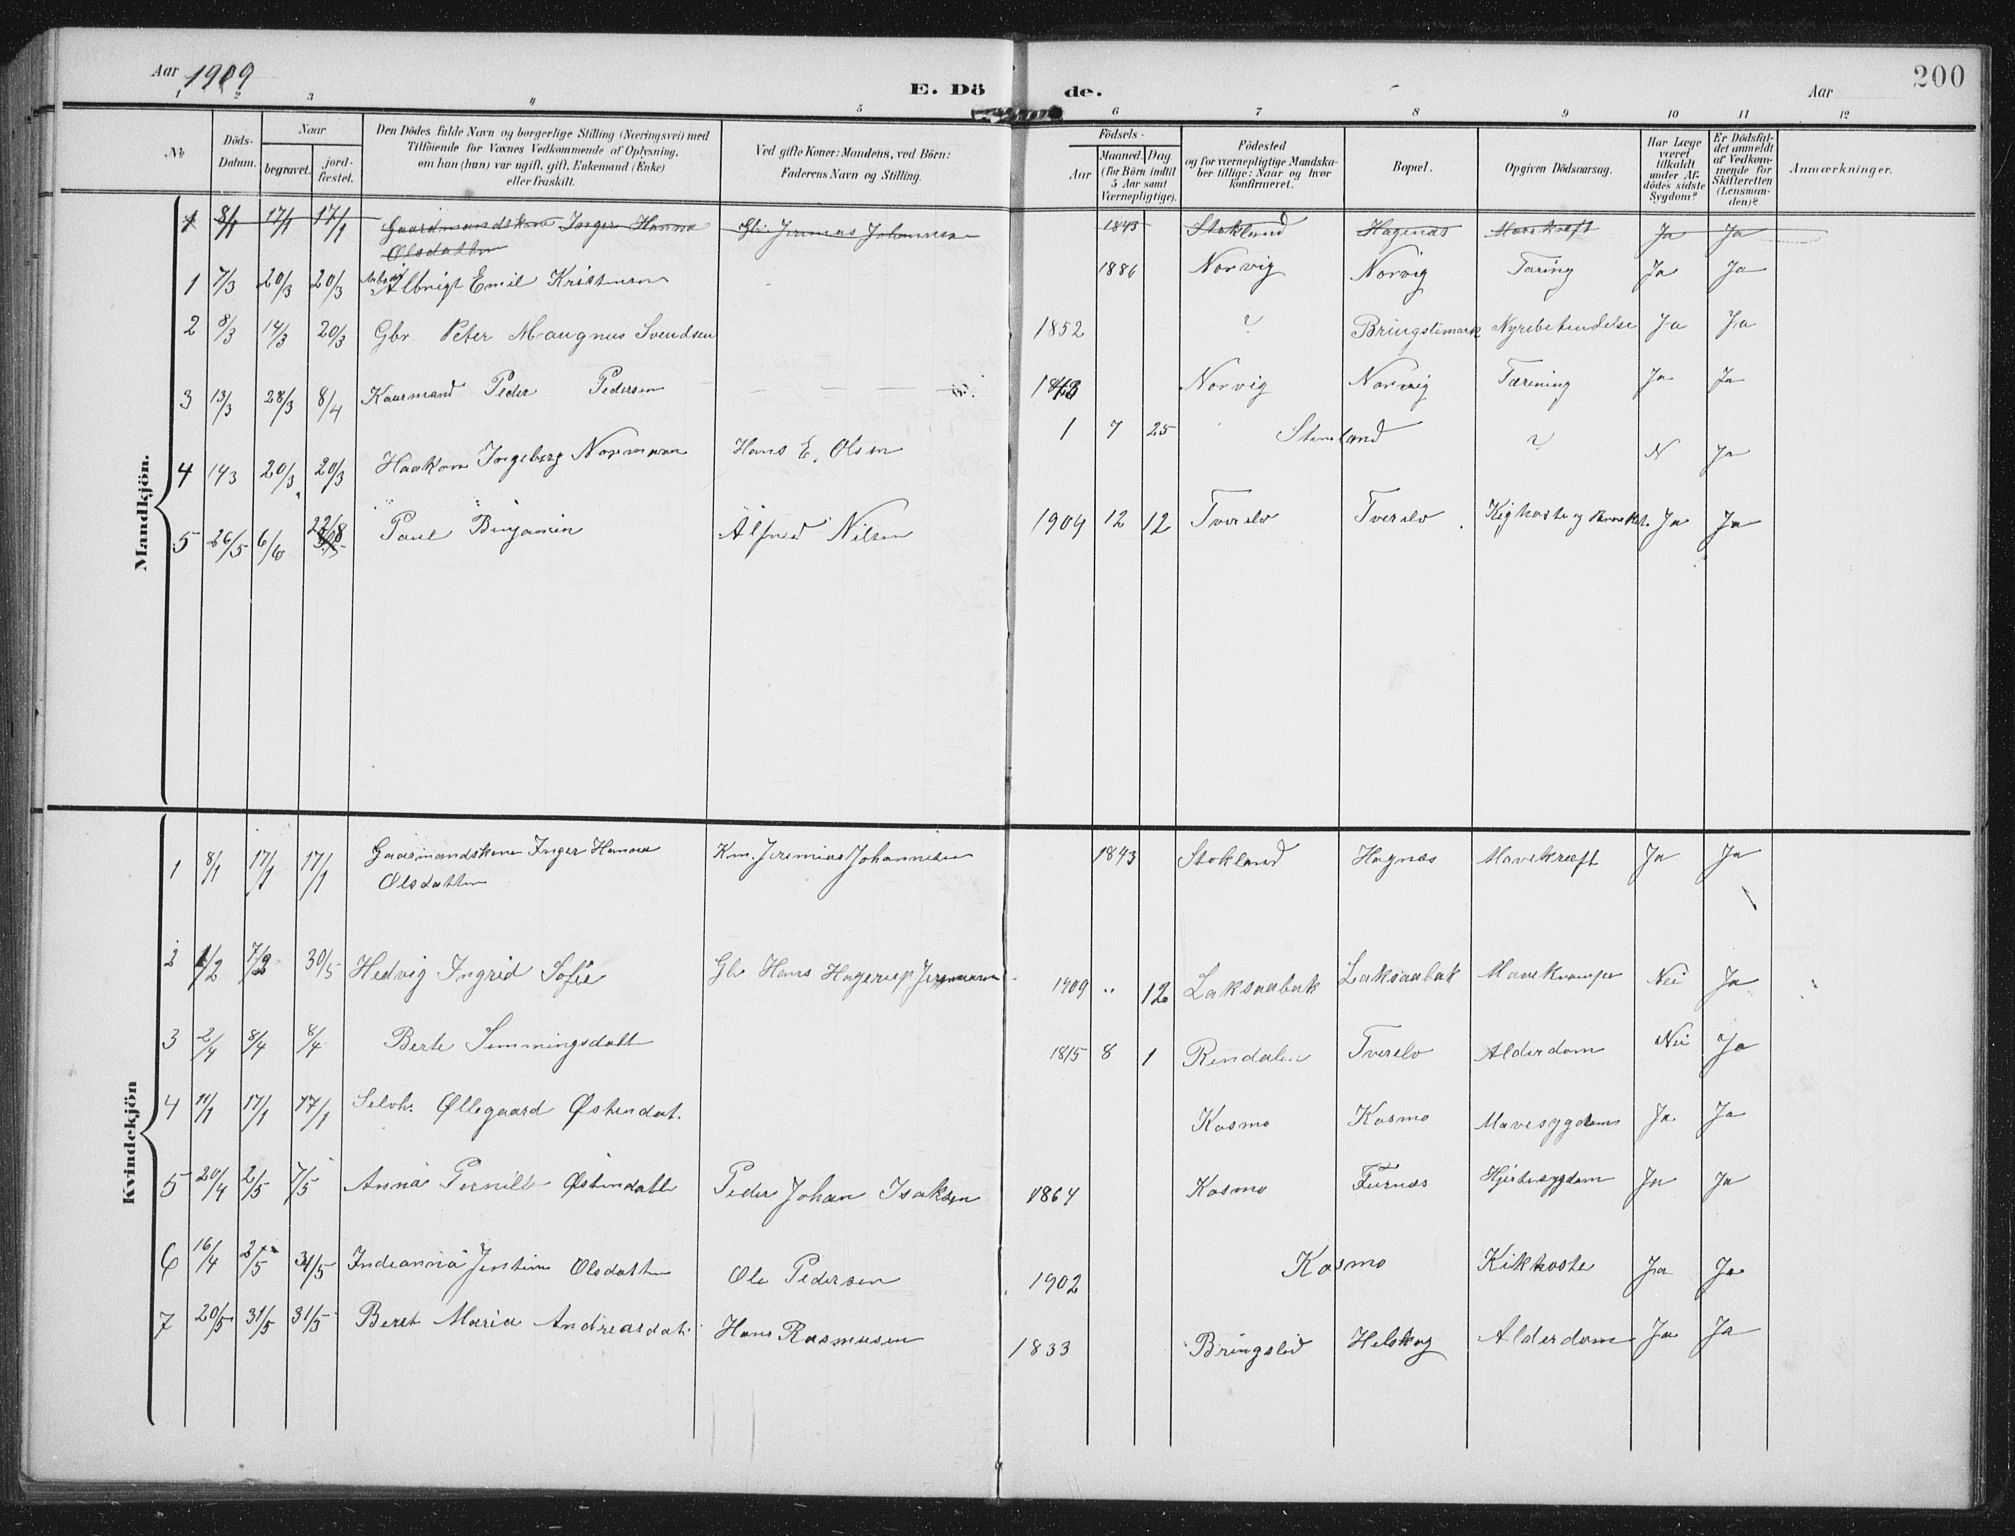 Aar 1909
E. Dö de.
Aar
200
1 2 3 4 5 6 7 8 9 10 11 12
No
Döds-Datum.
Naar
begravet.
jord-fæstet.
Den Dödes fulde Navn og borgerlige Stilling (Næringsvei) med
Tilföiende for Voxnes Vedkommende af Oplysning,
om han (hun) var ugift, gift, Enkemand (Enke)
eller fraskilt.
Ved gifte Koner: Mandens, ved Börn:
Faderens Navn og Stilling.
Födsels-
Aar
Maaned. Dag.
(for Börn indtil
5 Aar samt
Værnepligtige).
Födested
og for værnepligtige Mandska-
ber tillige: Naar og hvor
konfirmeret.
Bopæl.
Opgiven Dödsaarsag.
Har Læge
været
tilkaldt
under Af-
dödes sidste
Sygdom?
Er Dödsfal-
det anmeldt
af Vedkom-
mende for
Skifteretten
(Lensman-
den)?
Anmærkninger.
Mandkjön.
1 8/1 17/1 17/1 Gaardmandskone Inger Hanna Gbr Jeremias Johannesen 1843 Stokland Hagenæs Mavekræft Ja Ja
Olsdatter
1 7/3 20/3 20/3 Albrigt Emil Kristensen 1886 Norvig Norvig Tæring Ja Ja
2 8/3 14/3 20/3 Gbr Peter Maugnus Svendsen 1852 ? Bringslimark Nyrebetendelse Ja Ja
3 13/3 28/3 8/4 Kaarmand Peder Pedersen Norvig Norvig Tærining Ja Ja
4 14/3 20/3 20/3 Haakon Ingeberg Normann Hans E. Olsen 1 7 25 Stenland ? N Ja
5 26/5 6/6 22/8 Paul Binjamin Alfred Nilsen 1904 12 12 Tverelv Tverelv Kighoste og Ja Ja
Kvindekjön
1 8/1 17/1 17/1 Gaarmandskone Inger Hanna Km. Jeremias Johannesen 1843 Stokland Hagnæs Mavekræft Ja Ja
Olsdatter
2 1/2 7/2 30/5 Hedvig Ingrid Sofie Gbr Hans Hagerup Jeremiasen 1909 " 12 Laksaabak Laksaabak Mavekrampe Nei Ja
3 2/4 8/4 8/4 Berte Semmingsdatt 1815 8 1 Rendalen Tverelv Alderdom Nei Ja
4 11/1 17/1 17/1 Selvh. Øllegaard Østendat. Kosmo Kosmo Mavesygdoms Ja Ja
5 20/4 2/5 7/5 Anna Pernille Østendatte Peder Johan Isaksen 1864 Kosmo Furnæs Hjertesygdom Ja Ja
6 16/4 2/5 31/5 Indianna Jentine Olsdatter Ole Pedersen 1902 Kosmo Kikhoste Ja Ja
7 20/5 31/5 31/5 Beret Maria Andreasdat. Hans Rasmusen 1833 Bringslid Helskog Alderdom Ja Ja